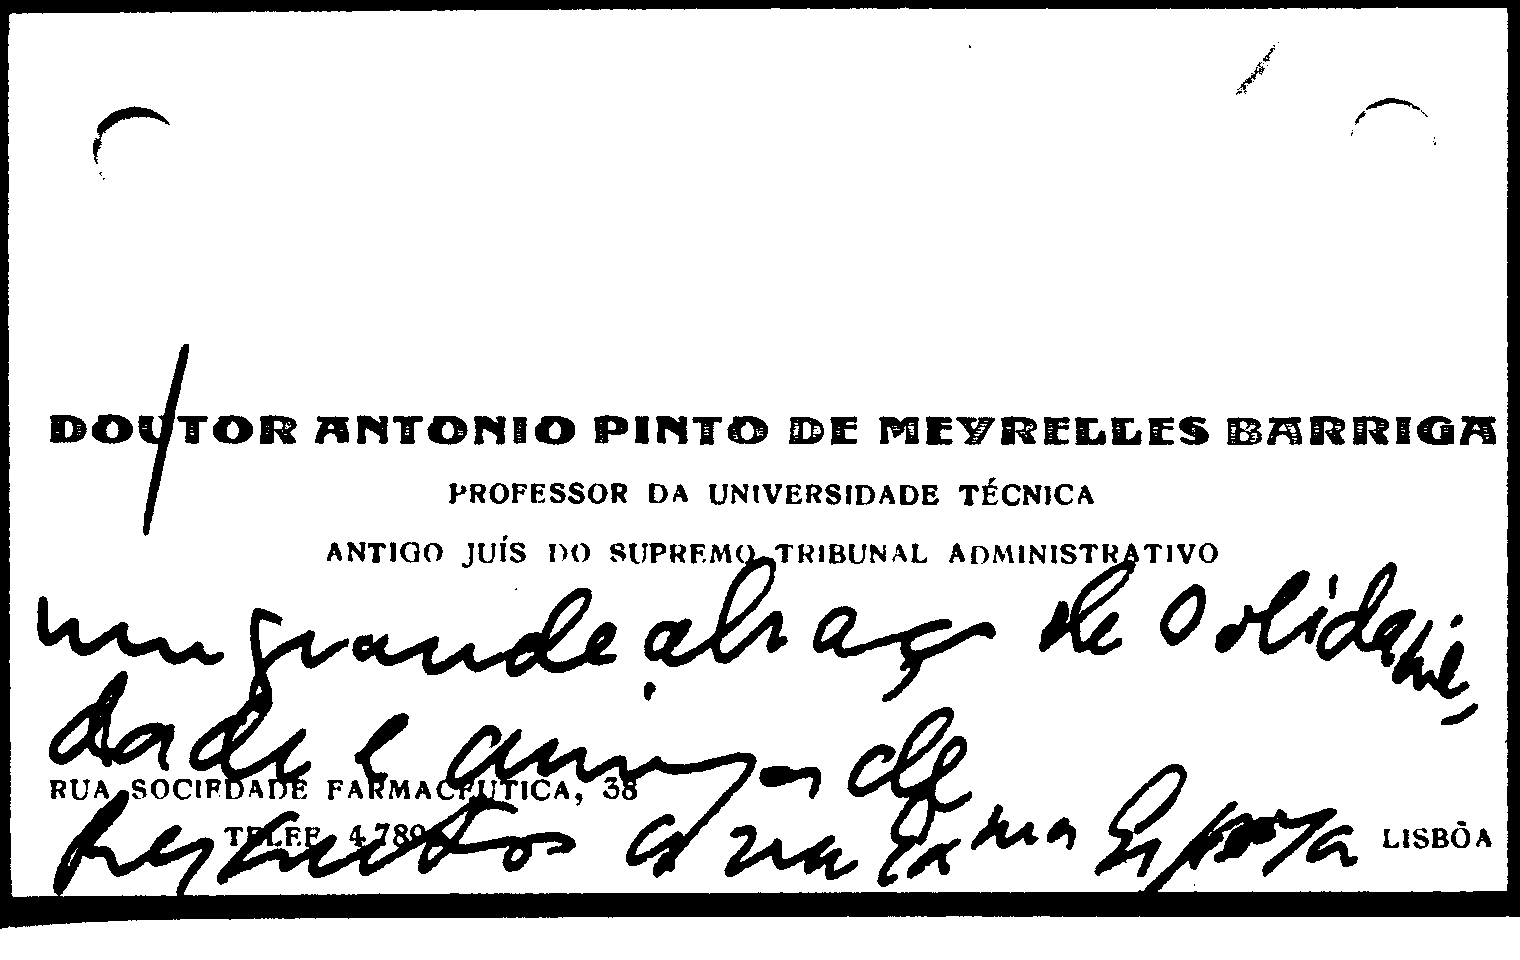 DOUTOR ANTONIO PINTO DE MEYRELLES BARRIGA
PROFESSOR DA UNIVERSIDADE TÉCNICA
ANTIGO JUÍS DO SUPREMO TRIBUNAL ADMINISTRATIVO
um grande abraço de solidarie-
dade e amizade
RUA SOCIEDADE FARMACEUTICA, 38
TELEF. 4 789
Respeitos a sua Exma Esposa
LISBÔA